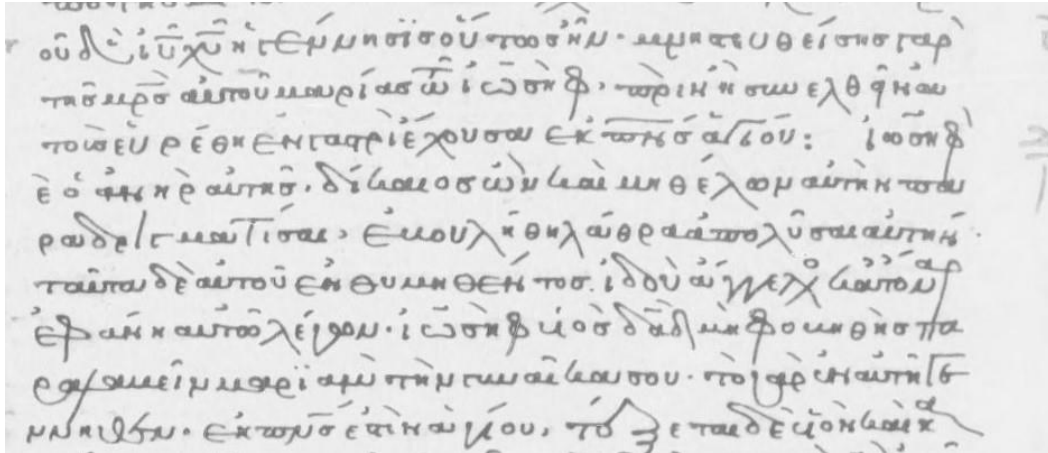 οῦ δὲ ἰῦ χῦ ἡ γέννησϊς οὕτως ἦν· μνηστευθείσης γὰρ
τῆς μρ̅ς αὐτοῦ μαρίας τῶ ἰωσὴφ, πρὶν ἢ συνελθεῖν αὐ
τοὺς εὑρέθη ἐν γαστρὶ ἔχουσα ἐκ πν̅ς ἁγίου: ἰωσὴφ
ὲ ὁ ἀνὴρ αὐτῆς, δίκαιος ὢν καὶ μὴ θέλων αὐτὴν πα
ραδειγματίσαι, ἐβουλήθη λάθρα ἀπολῦσαι αὐτήν·
ταῦτα δὲ αὐτοῦ ἐνθυμηθέντος. ἰδοὺ ἄγγελος κατόναρ
ἐφάνη αὐτῶ λέγων· ἰωσὴφ υἱὸς δᾱδ μὴ φοβηθῆς πα
ραλαβεῖν μαρϊὰμ τὴν γυναῖκα σου· τὸ γὰρ ἐν αὐτῆ γε
ννηθὲν· ἐκ πν̅ς ἐστὶν ἁγίου, τέξεται δὲ υἱὸν καὶ κα